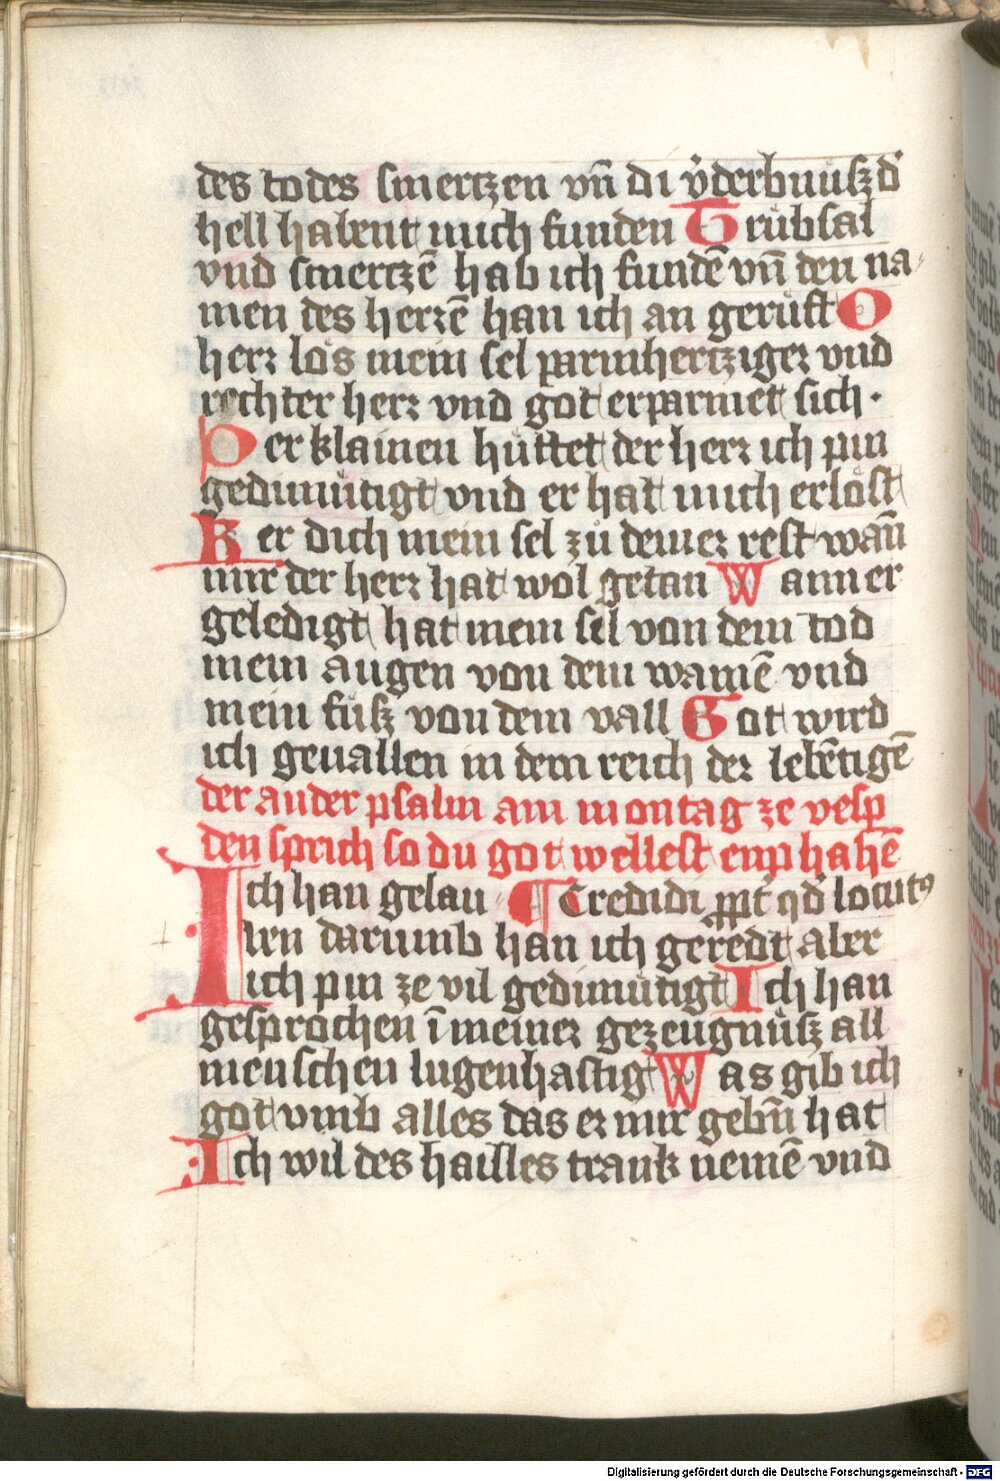 des todes smertzen vn̄ di v̓derbnusz d̓
hell habent mich funden Trůbsal
vnd smertzē hab ich fundē vn̄ den na-
men des herrē han ich an gerůft O
herr lo᷒s mein sel parmhertziger vnd
rechter herr vnd got erparmet sich ·
Der klainen hůttet der herr ich pin
gedimůtigt vnd er hat mich erlöst
Ker dich mein sel zů deiner rest wan̄
mir der herr hat wol getan Wann er
geledigt hat mein sel von dem tod
mein augen von dem wainē vnd
mein fůsz von dem vall Got wird
ich geuallen in dem reich der lebētigē
der ander psalm am montag ze vesp
den sprich so du got wellest enphahē
Ich han gelau- ¶ Credidi ꝓpt̓ qd̓ locutꝰ
ben darumb han ich geredt Aber
ich pin ze vil gedimůtigt Ich han
gesprochen ī meiner gezeugnůsz all
menschen lugenhaftig Was gib ich
got vmb alles das er mir gebn̄ hat
Ich wil des hailles trank nemē vnd
Digitalisierung gefördert durch die Deutsche Forschungsgemeinschaft - DFG